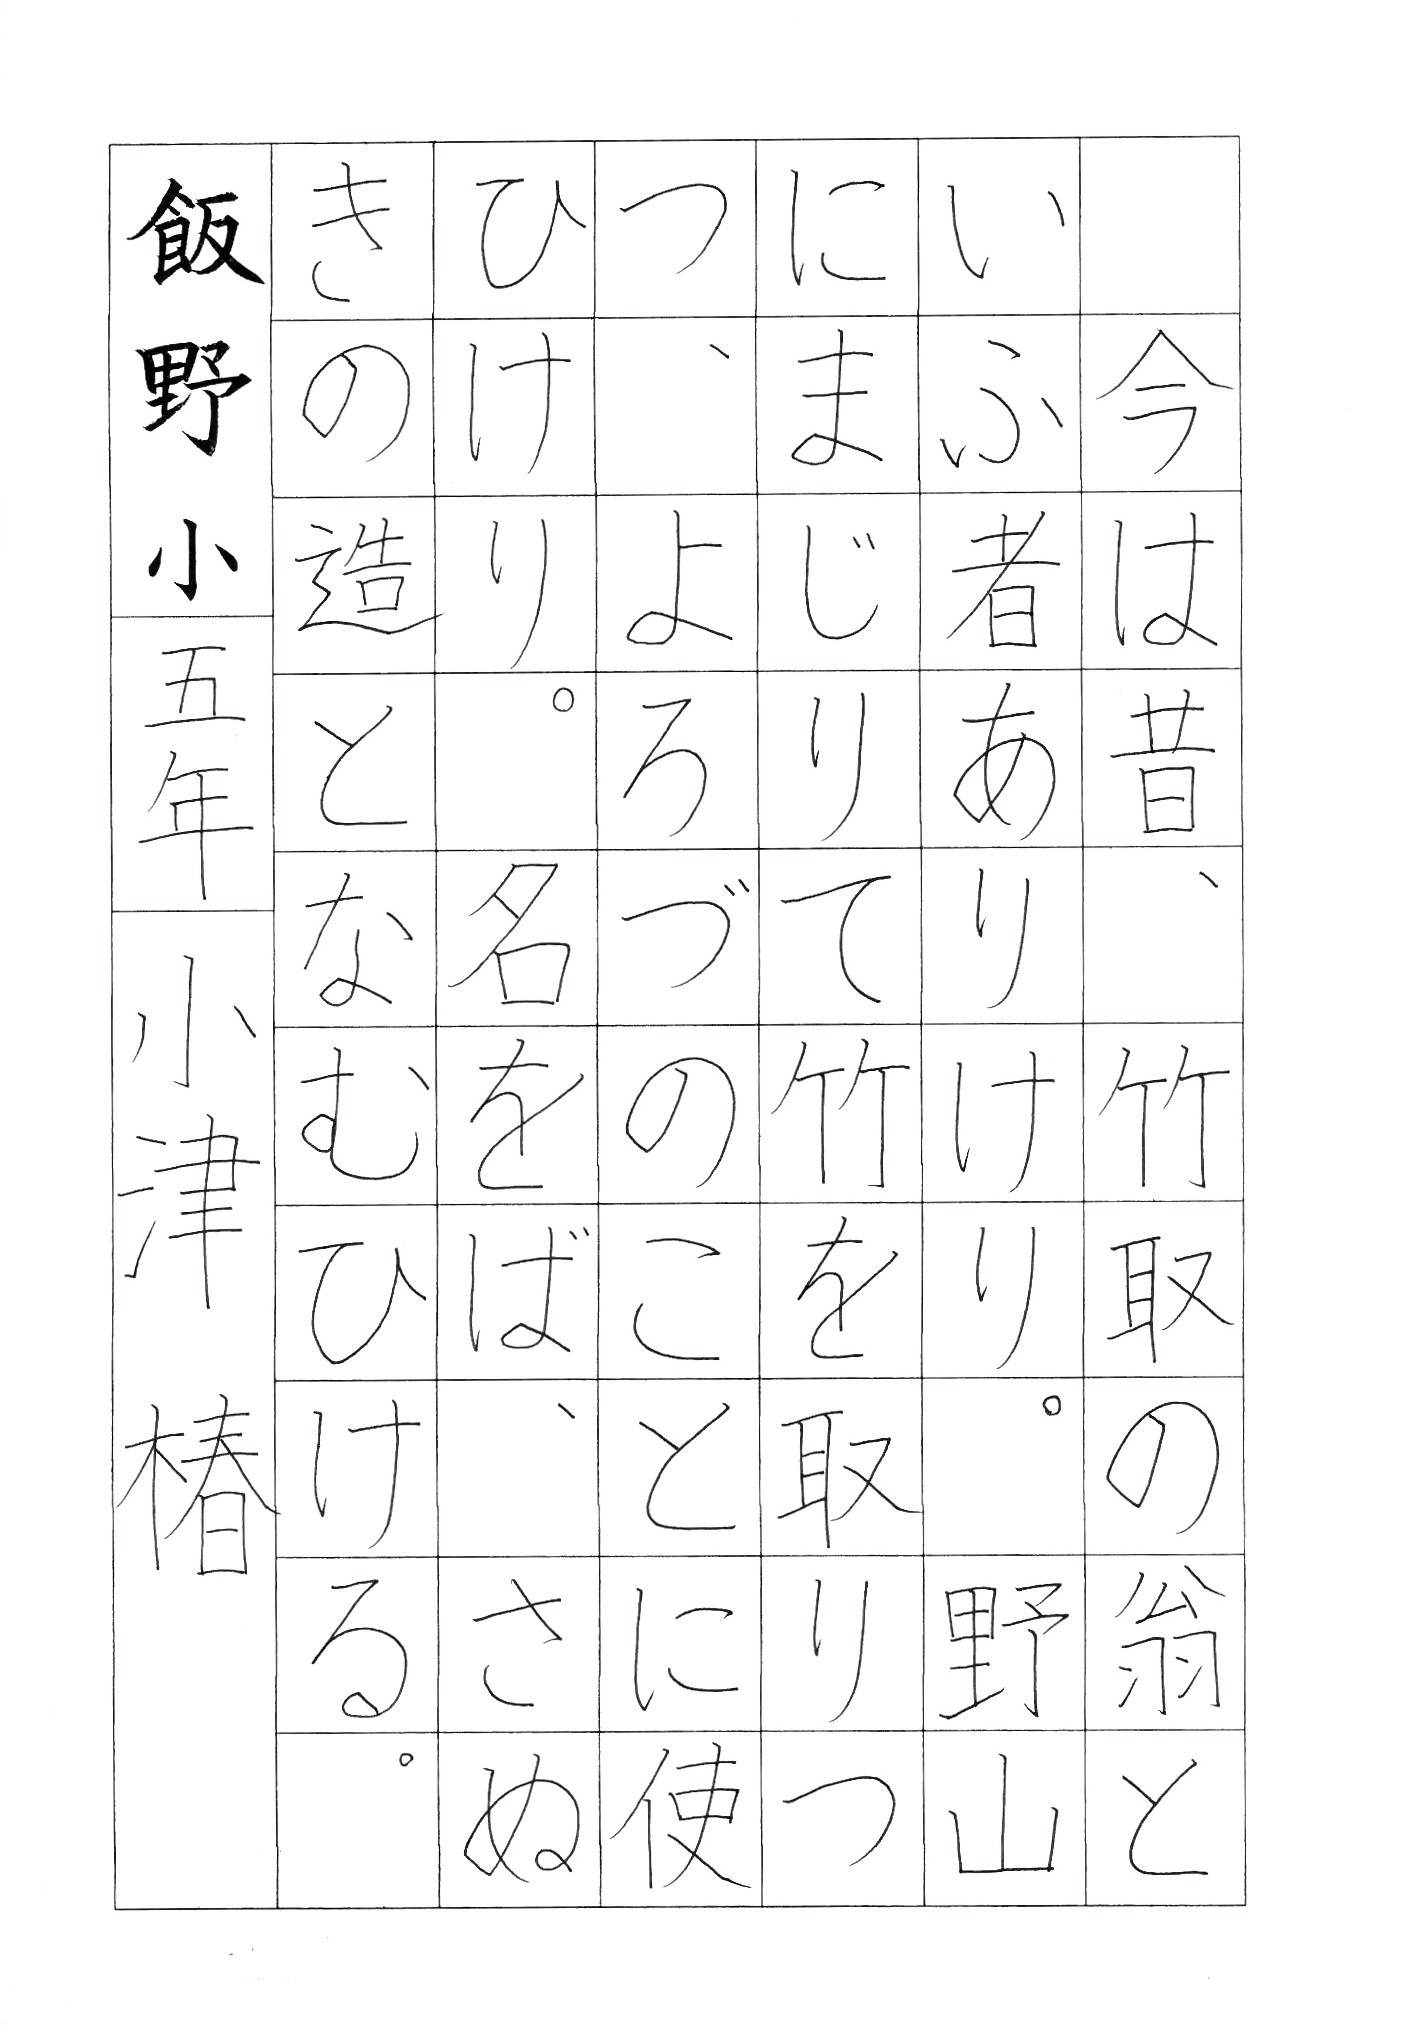 今は昔、竹取の翁と
いふ者ありけり。野山
にまじりて竹を取りつ
つ、よろづのことに使
ひけり。名をば、さぬ
きの造となむひける。
飯野小 五年 小津 椿